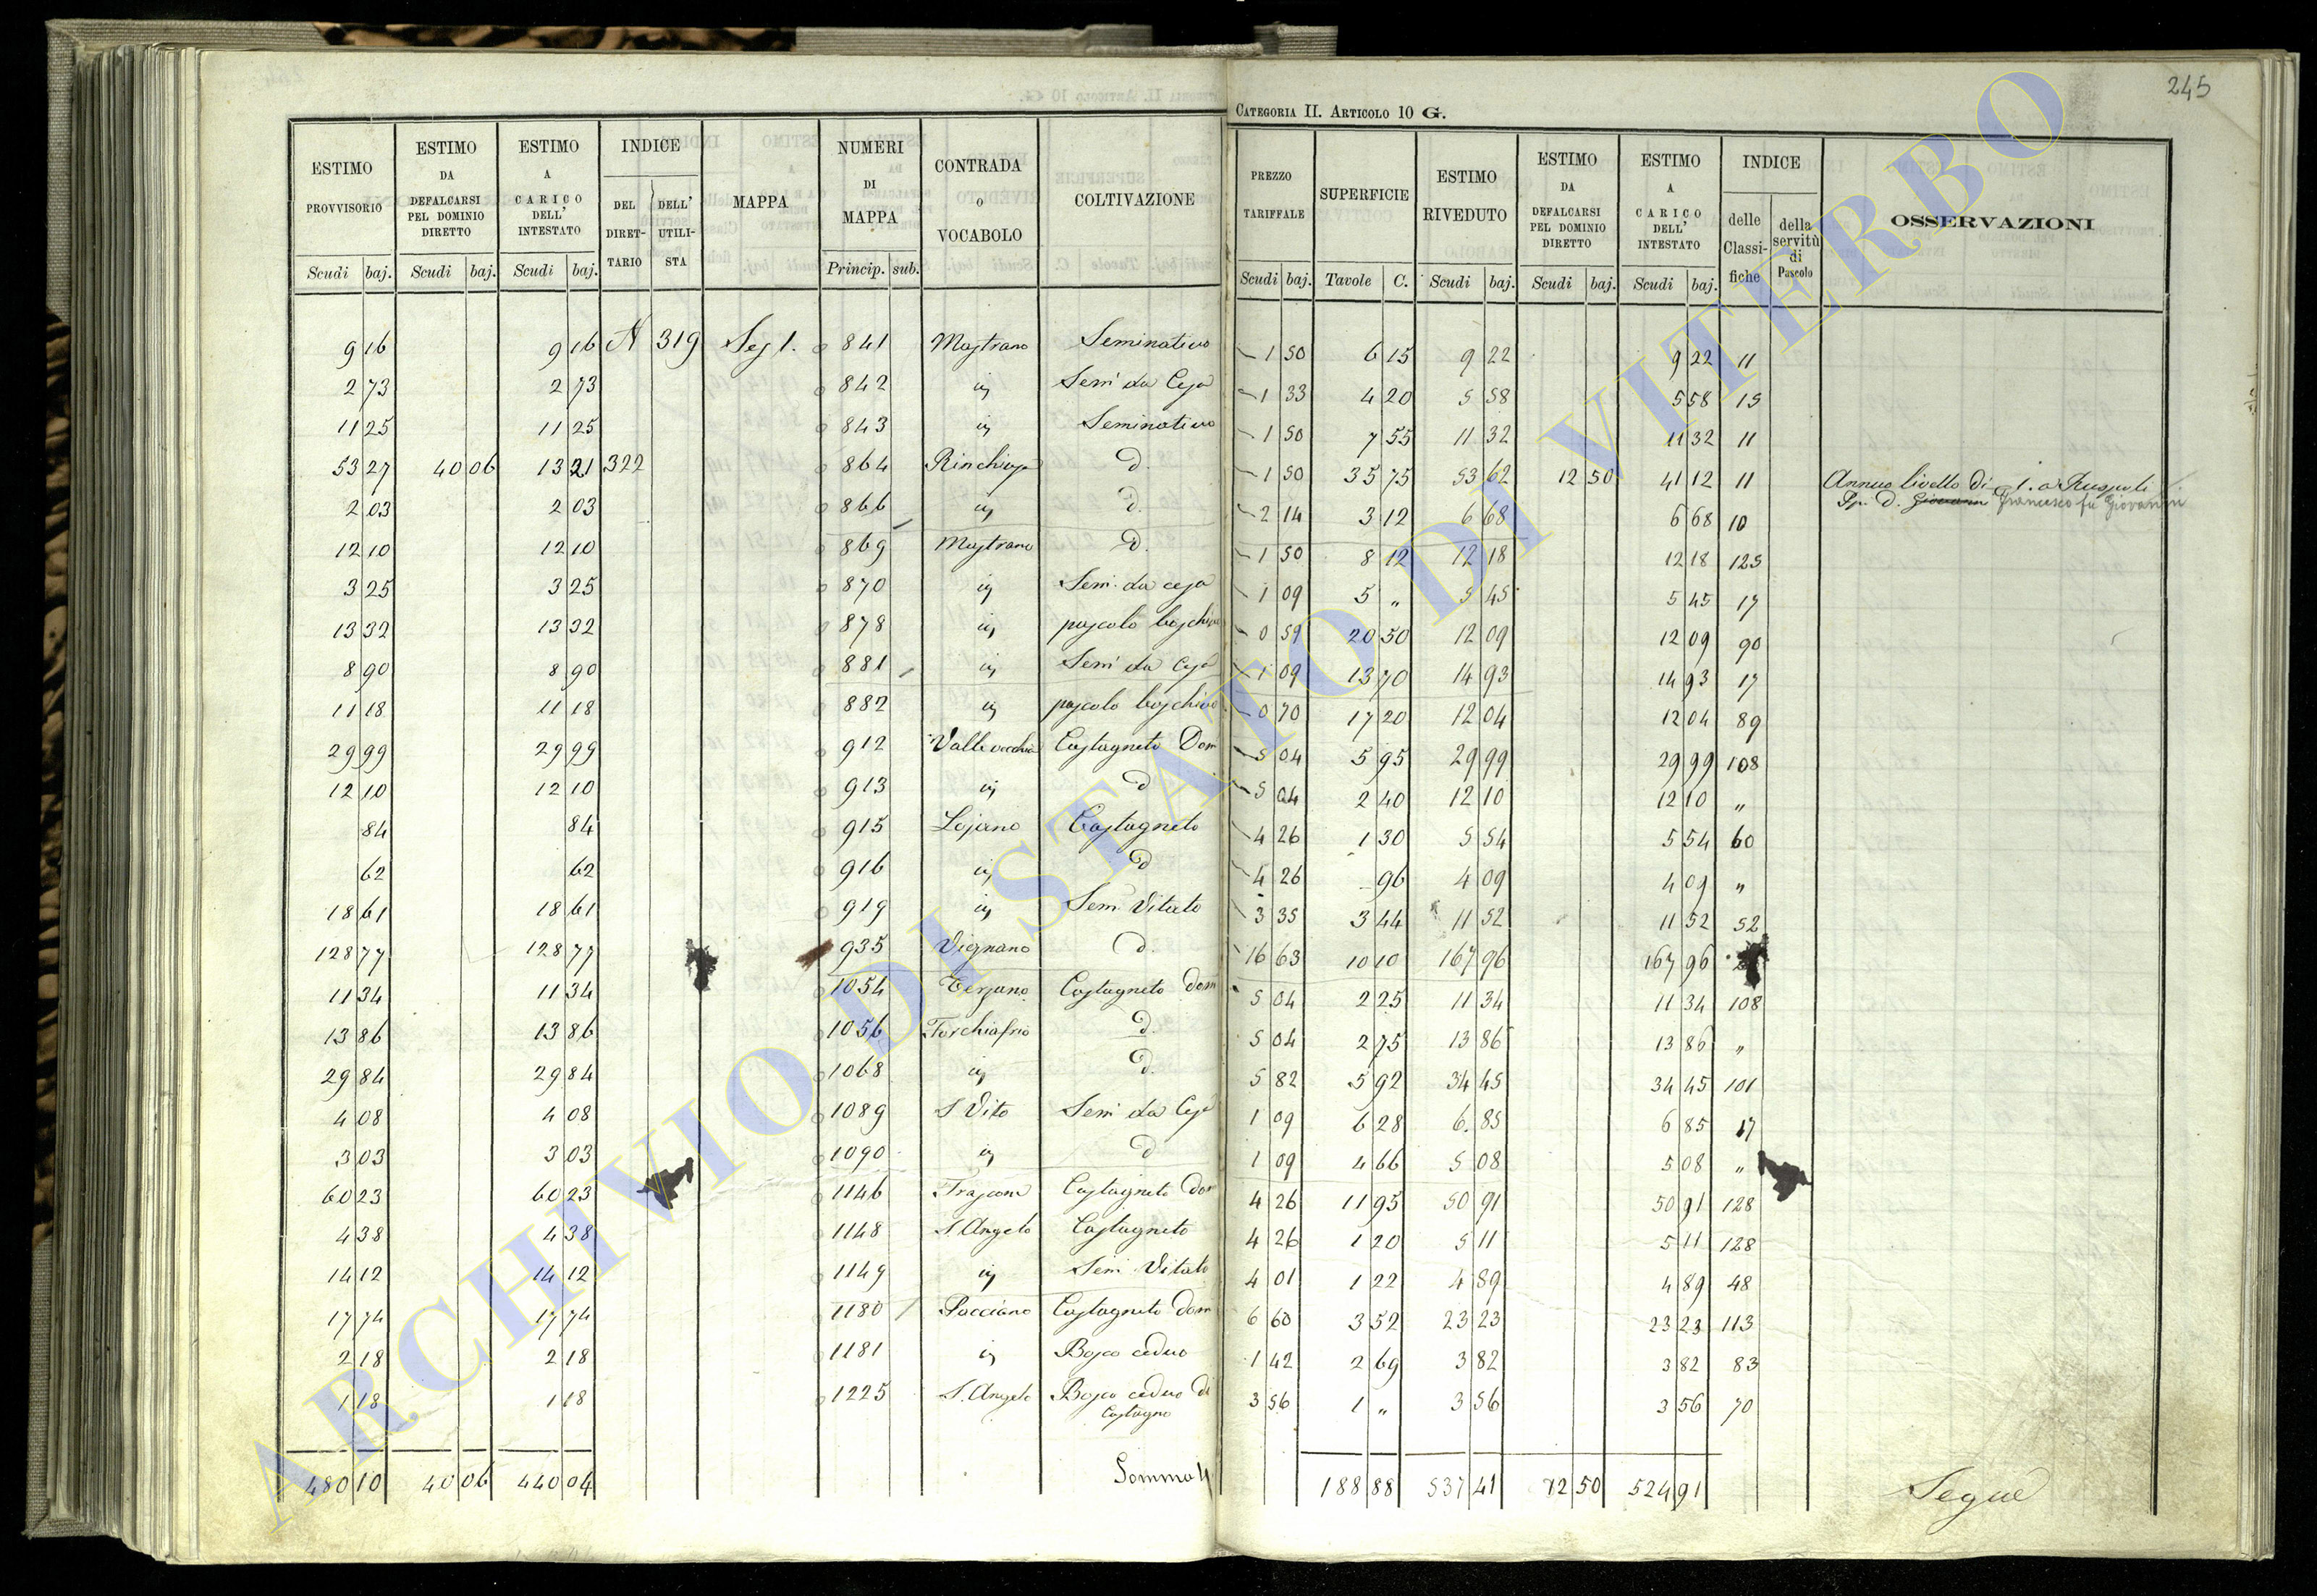 245
CATEGORIA II. ARTICOLO 10 G.
ESTIMO PROVVISORIO | ESTIMO DA DEFALCARSI PEL DOMINIO DIRETTO | ESTIMO A CARICO DELL' INTESTATO | INDICE DEL DIRETTARIO | DELL' UTILISTA | MAPPA | NUMERI DI MAPPA | CONTRADA O VOCABOLO | COLTIVAZIONE | PREZZO TARIFFALE | SUPERFICIE | ESTIMO RIVEDUTO | ESTIMO DA DEFALCARSI PEL DOMINIO DIRETTO | ESTIMO A CARICO DELL' INTESTATO | INDICE delle Classifiche | della servitù di Pascolo | OSSERVAZIONI
Scudi baj. | Scudi baj. | Scudi baj. | Princip. sub. | Scudi baj. | Tavole C. | Scudi baj. | Scudi baj. | Scudi baj.
9 16 | 9 16 | N | 319 | Sez 1. | 841 | Mastrano | Seminativo | 1 50 | 6 15 | 9 22 | 9 22 | 11
2 73 | 2 73 | 842 | iÿ | Sem da Cesa | 1 33 | 4 20 | 5 58 | 5 58 | 15
11 25 | 11 25 | 843 | iÿ | Seminativo | 1 50 | 7 55 | 11 32 | 11 32 | 11
53 27 | 40 06 | 13 21 | 322 | 864 | d. | 1 50 | 35 75 | 53 62 | 12 50 | 41 12 | 11 | Annuo livello di 1. a Ruspoli
2 03 | 2 03 | 866 | iÿ | d. | 2 14 | 3 12 | 6 68 | 6 68 | 10 | d. Giovanni Francesco fu Giovanni
12 10 | 12 10 | 869 | Mastrano | d. | 1 50 | 8 12 | 12 18 | 12 18 | 125
3 25 | 3 25 | 870 | iÿ | Sem. da cesa | 1 09 | 5 „ | 5 45 | 5 45 | 17
13 32 | 13 32 | 878 | iÿ | pascolo boschivo | 0 59 | 20 50 | 12 09 | 12 09 | 90
8 90 | 8 90 | 881 | iÿ | Sem da Cesa | 1 09 | 13 70 | 14 93 | 14 93 | 17
11 18 | 11 18 | 882 | iÿ | pascolo boschivo | 0 70 | 17 20 | 12 04 | 12 04 | 89
29 99 | 29 99 | 912 | Vallevecchia | Castagneto Dom | 5 04 | 5 95 | 29 99 | 29 99 | 108
12 10 | 12 10 | 913 | iÿ | d | 5 04 | 2 40 | 12 10 | 12 10 | „
84 | 84 | 915 | Lojano | Castagneto | 4 26 | 1 30 | 5 54 | 5 54 | 60
62 | 62 | 916 | iÿ | d | 4 26 | 96 | 4 09 | 4 09 | „
18 61 | 18 61 | 919 | iÿ | Sem Vitato | 3 35 | 3 44 | 11 52 | 11 52 | 52
128 77 | 128 77 | 935 | Vignano | d. | 16 63 | 10 10 | 167 96 | 167 96
11 34 | 11 34 | 1054 | Terzano | Castagneto dom | 5 04 | 2 25 | 11 34 | 11 34 | 108
13 86 | 13 86 | 1056 | Torchiafrio | d. | 5 04 | 2 75 | 13 86 | 13 86 | „
29 84 | 29 84 | 1068 | iÿ | d. | 5 82 | 5 92 | 34 45 | 34 45 | 101
4 08 | 4 08 | 1089 | S Vito | Sem da Cesa | 1 09 | 6 28 | 6. 85 | 6 85 | 17
3 03 | 3 03 | 1090 | iÿ | d | 1 09 | 4 66 | 5 08 | 5 08 | „
60 23 | 60 23 | 1146 | Castagneto dom | 4 26 | 11 95 | 50 91 | 50 91 | 128
4 38 | 4 38 | 1148 | S Angelo | Castagneto | 4 26 | 1 20 | 5 11 | 5 11 | 128
14 12 | 14 12 | 1149 | iÿ | Sem Vitato | 4 01 | 1 22 | 4 89 | 4 89 | 48
17 74 | 17 74 | 1180 | Pacciano | Castagneto dom | 6 60 | 3 52 | 23 23 | 23 23 | 113
2 18 | 2 18 | 1181 | iÿ | Bosco ceduo | 1 42 | 2 69 | 3 82 | 3 82 | 83
1 18 | 1 18 | 1225 | S. Angelo | Bosco ceduo di Castagno | 3 56 | 1 „ | 3 56 | 3 56 | 70
480 10 | 40 06 | 440 04 | Somma | 188 88 | 537 41 | 12 50 | 524 91 | Segue
ARCHIVIO DI STATO DI VITERBO